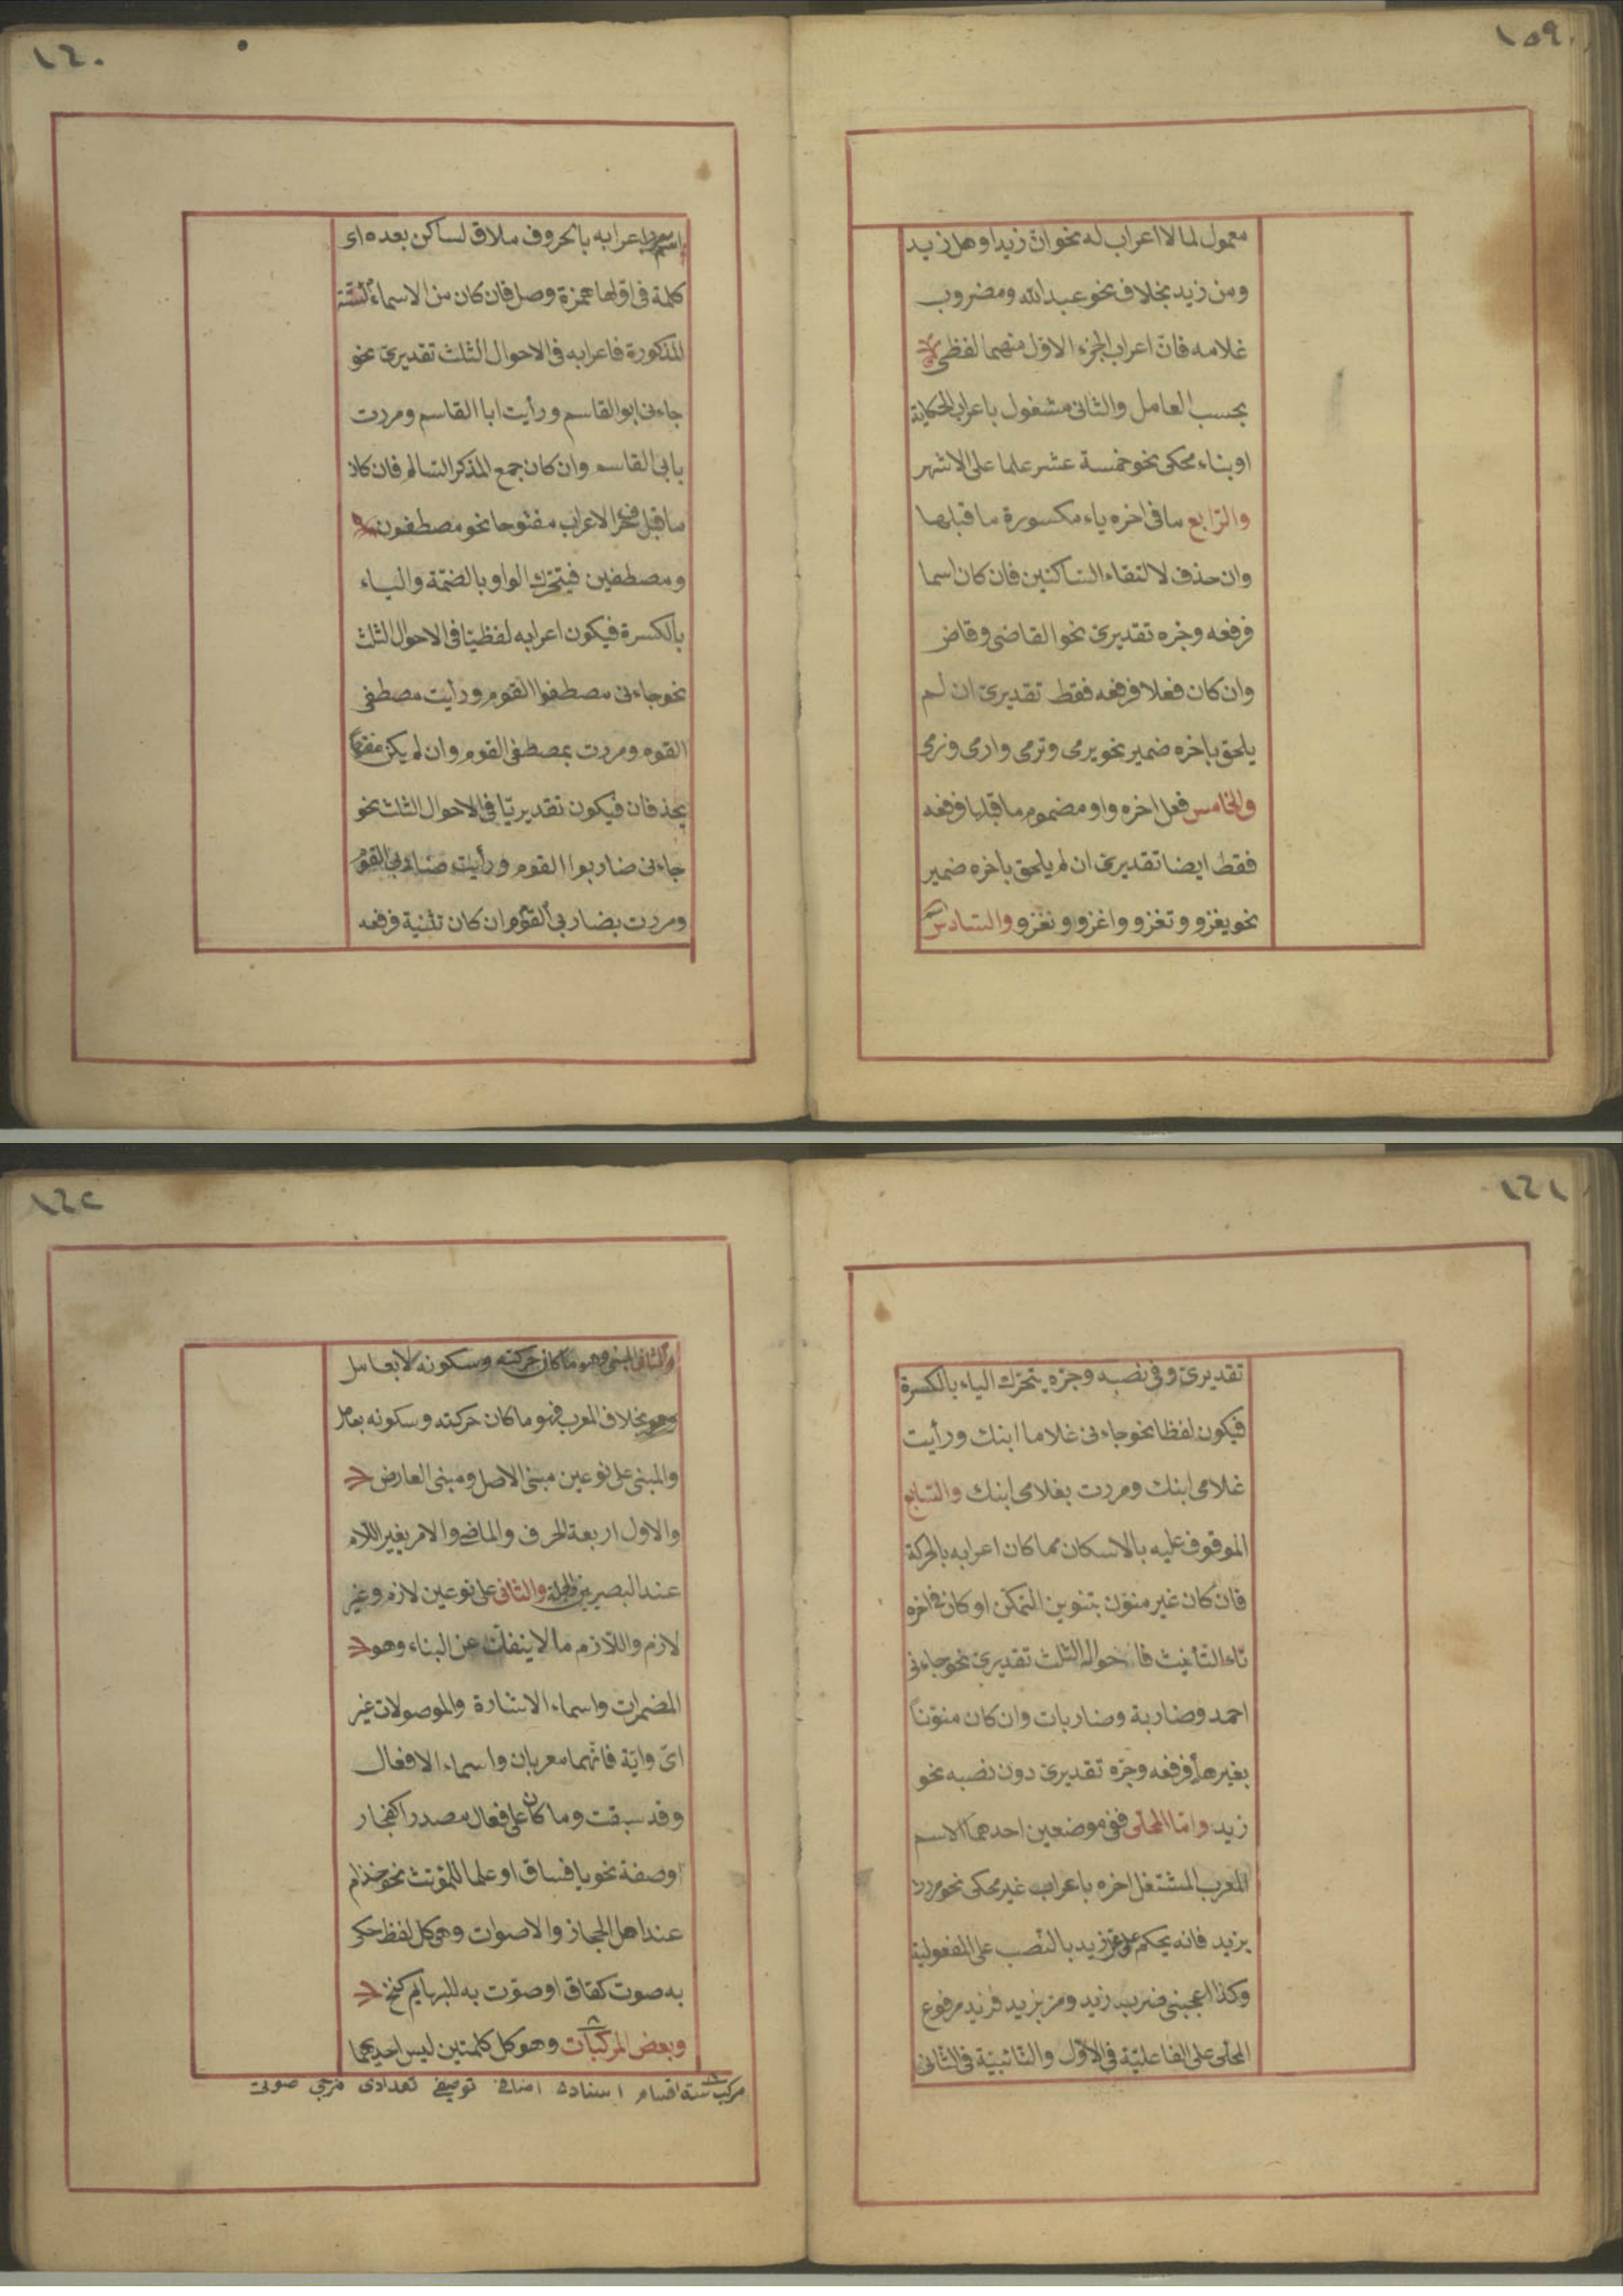 ١٥٩
معمول لما لا اعراب له نحو ان زيدا وهل زيد
ومن زيد بخلاف نحو عبد الله ومضروب
غلامه فان اعراب الجزء الاول منهما لفظى
بحسب العامل والثانى مشغول باعراب الحكاية
او بناء محكى نحو خمسة عشر علما على الاشهر
والرابع ما فى اخره ياء مكسورة ما قبلها
وان حذف لالتقاء الساكنين فان كان اسما
فرفعه وجره تقديرى نحو القاضى وقاض
وان كان فعلا فرفعه فقط تقديرى ان لم
يلحق باخره ضمير نحو يرمى وترمى وارمى ونرمى
والخامس فعل اخره واو مضموم ما قبلها فرفعه
فقط ايضا تقديرى ان لم يلحق باخره ضمير
نحو يغزو وتغزو واغزو ونغزو والسادس
١٦٠
اسم اعرابه بالحروف ملاق لساكن بعده اى
كلمة فى اولها همزة وصل فان كان من الاسماء الستة
المذكورة فاعرابه فى الاحوال الثلث تقديرى نحو
جاءنى ابو القاسم ورأيت ابا القاسم ومررت
بابى القاسم وان كان جمع المذكر السالم فان كان
ما قبل حرف الاعراب مفتوحا نحو مصطفون
ومصطفين فيتحرك الواو بالضمة والياء
بالكسرة فيكون اعرابه لفظيا فى الاحوال الثلث
نحو جاءنى مصطفوا القوم ورأيت مصطفى
القوم ومررت بمصطفى القوم وان لم يكن مفتوحا
يحذفان فيكون تقديريا فى الاحوال الثلث نحو
جاءنى ضاربوا القوم ورأيت ضاربى القوم
ومررت بضاربى القوم وان كان تثنية فرفعه
١٦١
تقديرى وفى نصبه وجره يتحرك الياء بالكسرة
فيكون لفظا نحو جاءنى غلاما ابنك ورأيت
غلامى ابنك ومررت بغلامى ابنك والسابع
الموقوف عليه بالاسكان مما كان اعرابه بالحركة
فان كان غير منون بتنوين التمكن او كان فى اخره
تاء التأنيث فاحواله الثلث تقديرى نحو جاءنى
احمد وضاربة وضاربات وان كان منونا
بغيرها فرفعه وجره تقديرى دون نصبه نحو
زيد واما المحلى ففى موضعين احدهما الاسم
المعرب المشتغل اخره باعراب غير محكى نحو مررت
بزيد فانه يحكم على زيد بالنصب على المفعولية
وكذا اعجبنى ضرب زيد ومر بزيد فزيد مرفوع
المحلى على الفاعلية فى الاول والنائبية فى الثانى
١٦٢
والثانى المبنى وهو ما كان حركته وسكونه لا بعامل
وهو بخلاف المعرب فهو ما كان حركته وسكونه بعامل
والمبنى على نوعين مبنى الاصل ومبنى العارض
والاول اربعة الحرف والماضى والامر بغير اللام
عند البصريين والجملة والثانى على نوعين لازم وغير
لازم واللازم ما لا ينفك عن البناء وهو
المضمرات واسماء الاشارة والموصولات غير
اى واية فانهما معربان واسماء الافعال
وقد سبقت وما كان على فعال مصدرا كفجار
او صفة نحو يا فساق او علما للمؤنث نحو حذام
عند اهل الحجاز والاصوات وهى كل لفظ حكى
به صوت كقاق او صوت به للبهايم كنخ
وبعض المركبات وهو كل كلمتين ليس احديهما
مركب ستة اقسام اسنادى اضافى توصيفى تعدادى مزجى صوتى